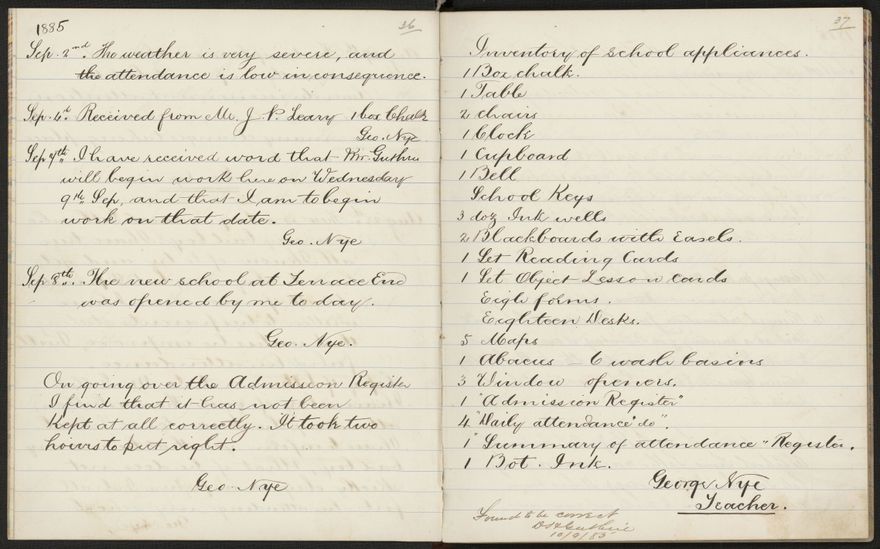 1885
36
Sep. 2nd. The weather is very severe, and
the attendance is low in consequence.
Sep. 4th. Received from Mr. J. P. Leary 1 box Chalk
Geo. Nye
Sep 7th. I have received word that Mr. Guthrie
will begin work here on Wednesday
9th Sep, and that I am to begin
work on that date.
Geo. Nye
Sep 8th. The new school at Terrace End
was opened by me to day.
Geo. Nye.
On going over the Admission Register
I find that it has not been
kept at all correctly. It took two
hours to put right.
Geo. Nye
37
Inventory of school appliances.
1 Box chalk.
1 Table
2 chairs
1 Clock
1 Cupboard
1 Bell
School Keys
3 doz Ink wells
2 Blackboards with Easels.
1 Set Reading Cards
1 Set Object Lesson cards
Eight forms.
Eighteen Desks.
5 Maps
1 Abacus — 6 wash basins
3 Window openers.
1 "Admission Register"
4 "Daily attendance" do".
1 "Summary of attendance" Register.
1 Bot. Ink.
George Nye
Teacher.
Found to be correct
Guthrie
10/9/85